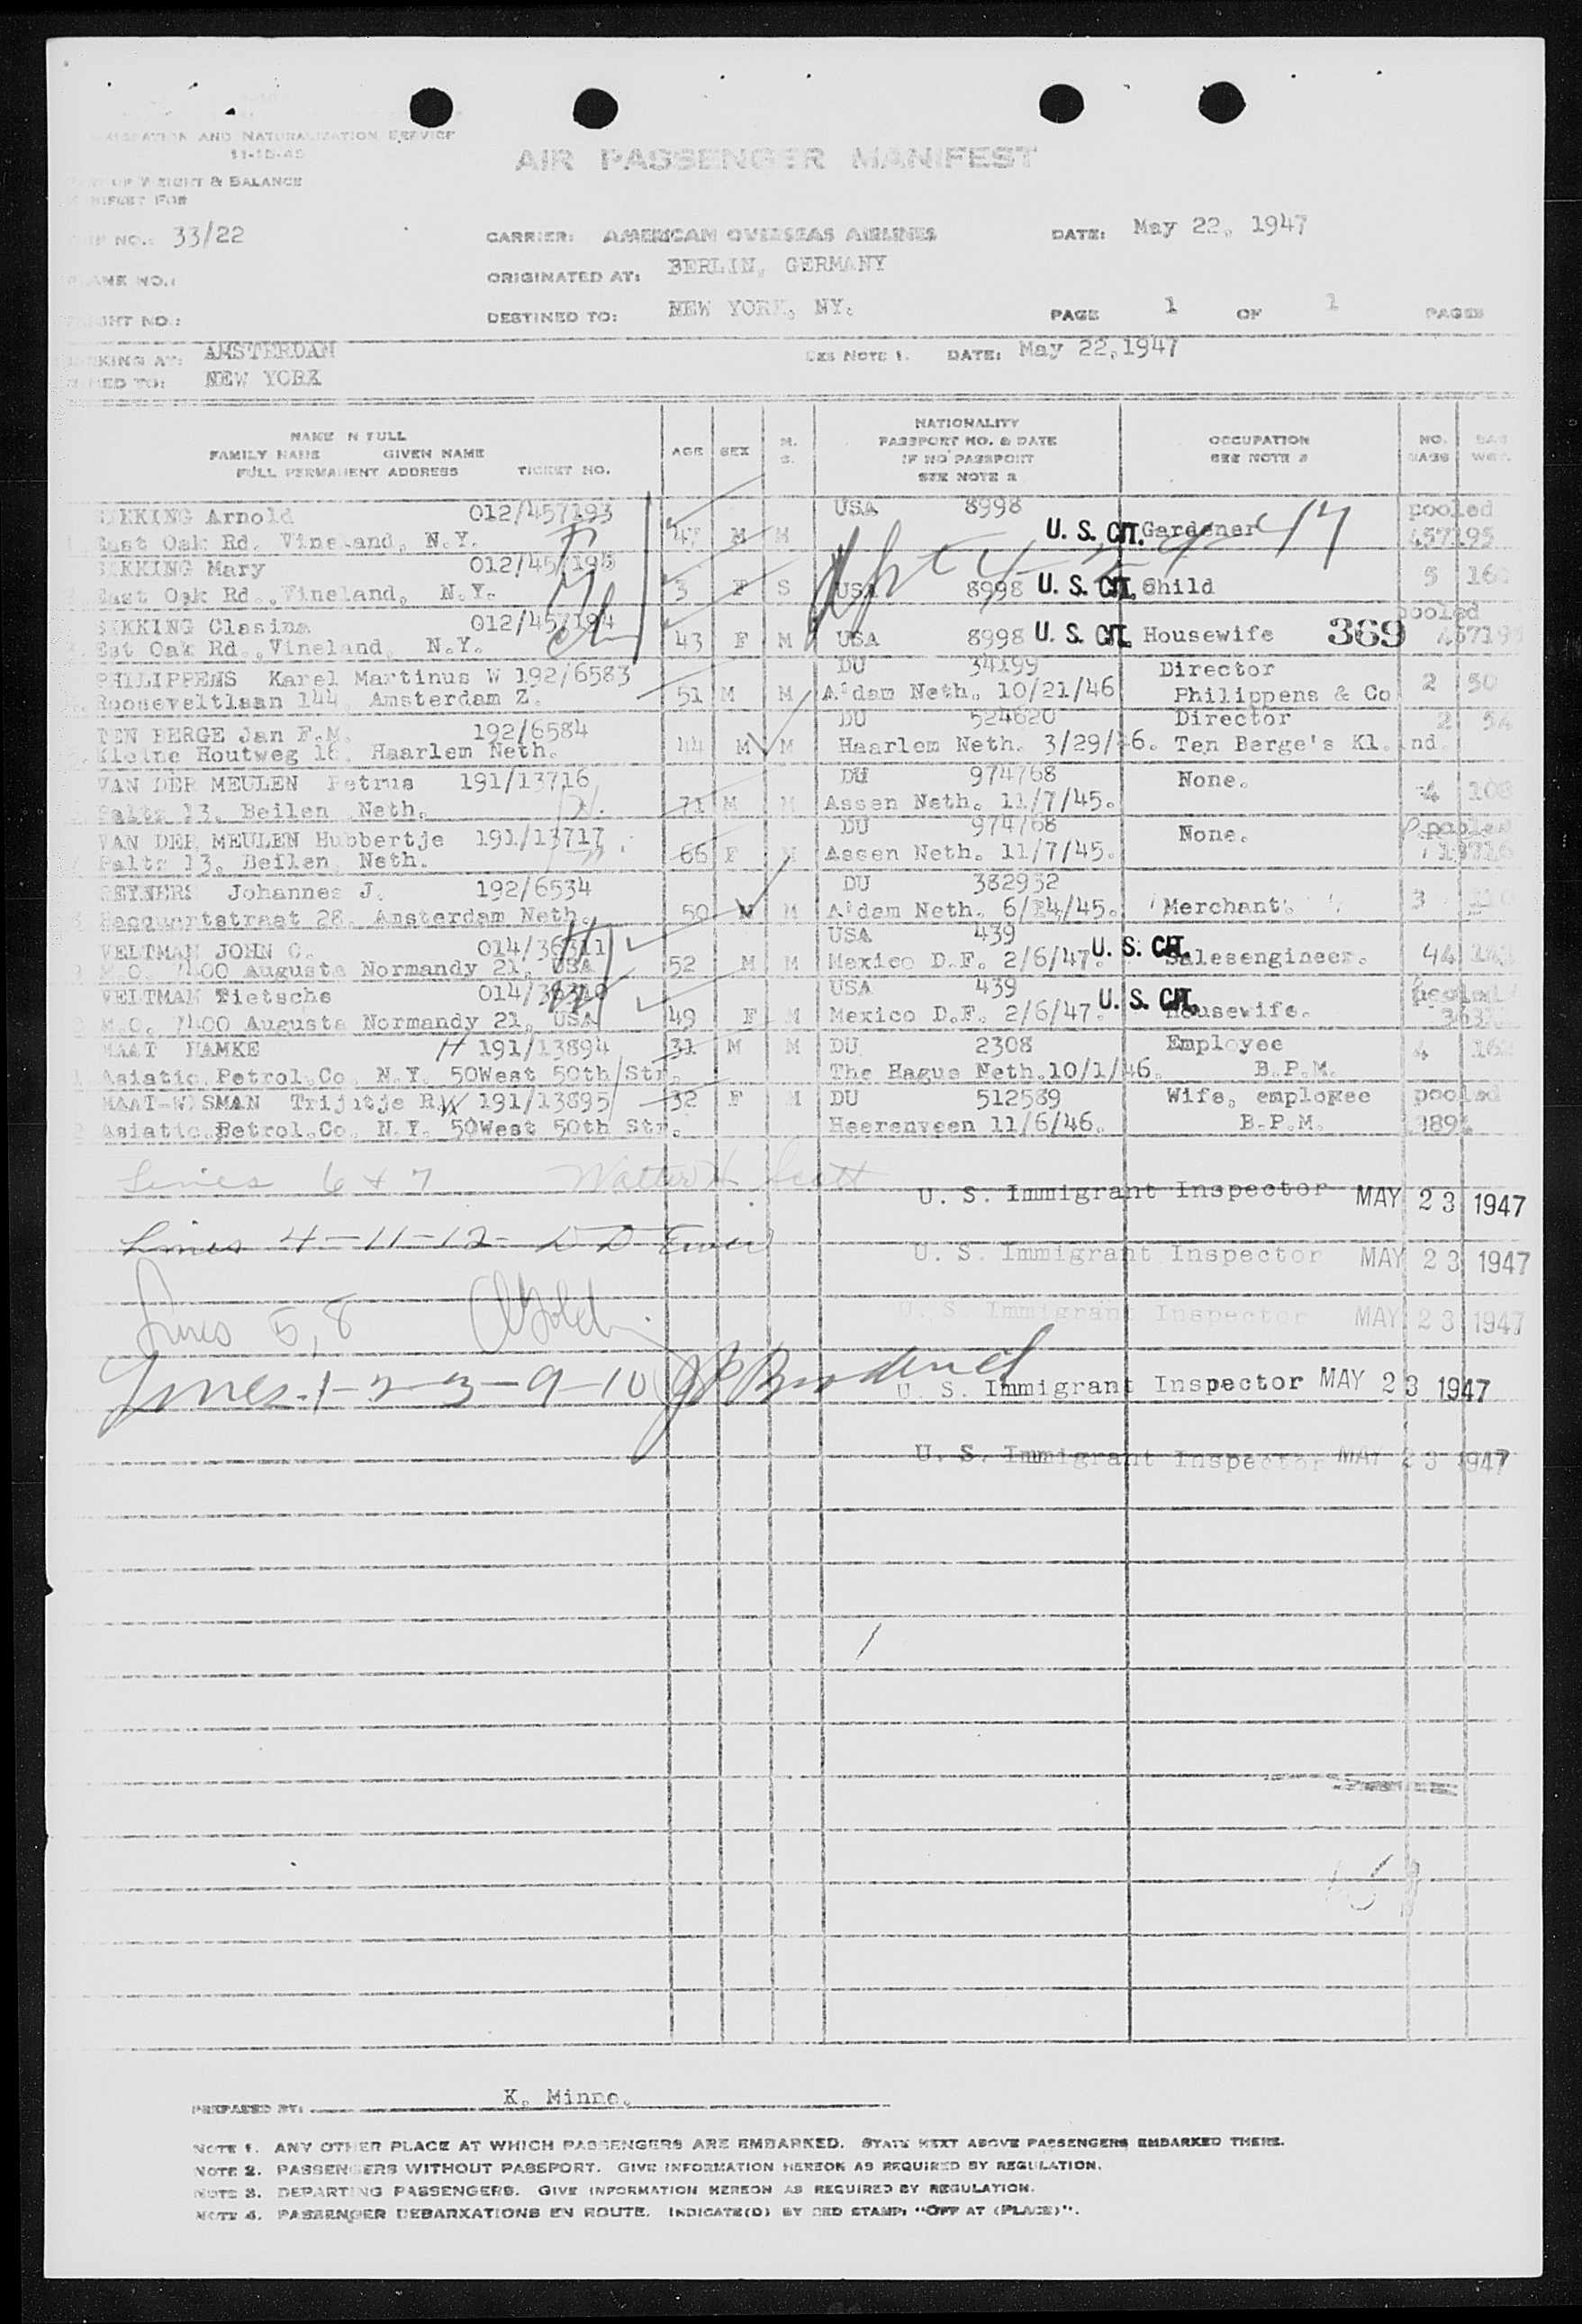 AND NATURALIZATION SERVICE
11-15-45
AIR PASSENGER MANIFEST
OF WEIGHT & BALANCE
MANIFEST FOR
NO.: 33/22
CARRIER: AMERICAN OVERSEAS AIRLINES
DATE: May 22, 1947
PLANE NO.:
ORIGINATED AT: BERLIN, GERMANY
NO.:
DESTINED TO: NEW YORK, NY.
PAGE 1 OF 1 PAGES
AT: AMSTERDAM
SEE NOTE 1. DATE: May 22, 1947
TO: NEW YORK
NAME IN FULL
FAMILY NAME GIVEN NAME
FULL PERMANENT ADDRESS TICKET NO.
AGE SEX M. S.
NATIONALITY
PASSPORT NO. & DATE
IF NO PASSPORT
SEE NOTE 2
OCCUPATION
SEE NOTE 3
NO. BAGS
BAG WGT.
SEKKING Arnold 012/457193 47 M M USA 8998 U. S. CIT. Gardener pooled
East Oak Rd. Vineland, N.Y. 457195
SEKKING Mary 012/457195 3 F S USA 8998 U. S. CIT. Child 5
East Oak Rd., Vineland, N.Y.
SEKKING Clasina 012/457194 43 F M USA 8998 U. S. CIT. Housewife 369 pooled
Est Oak Rd., Vineland, N.Y.
PHILIPPENS Karel Martinus W 192/6583 51 M M DU 34199 Director 2 50
Rooseveltlaan 144, Amsterdam Z. A'dam Neth. 10/21/46 Philippens & Co
TEN BERGE Jan F.M. 192/6584 44 M M DU 524620 Director 2
Kleine Houtweg 16, Haarlem Neth. Haarlem Neth. 3/29/46. Ten Berge's Kl. Ind.
VAN DER MEULEN Petrus 191/13716 71 M M DU 974768 None. 4
Paltz 13, Beilen, Neth. Assen Neth. 11/7/45.
VAN DER MEULEN Hubbertje 191/13717 66 F M DU 974768 None. pooled
Paltz 13, Beilen, Neth. Assen Neth. 11/7/45.
REYNERS Johannes J. 192/6534 50 M M DU 382932 Merchant. 3
Hacquartstraat 28, Amsterdam Neth. A'dam Neth. 6/14/45.
VELTMAN JOHN C. 014/36311 52 M M USA 439 U. S. CIT. Salesengineer. 44
M.O. 7400 Augusta Normandy 21, USA Mexico D.F. 2/6/47.
VELTMAN Tietsche 014/36310 49 F M USA 439 U. S. CIT. Housewife. pooled
M.O. 7400 Augusta Normandy 21, USA Mexico D.F. 2/6/47.
MAAT HAMKE 191/13894 31 M M DU 2308 Employee 4
Asiatic Petrol.Co. N.Y. 50West 50th Str. The Hague Neth.10/1/46. B.P.M.
MAAT-WISMAN Trijntje R. 191/13895 32 F M DU 512589 Wife, employee pooled
Asiatic.Petrol.Co. N.Y. 50West 50th Str. Heerenveen 11/6/46. B.P.M.
Lines 6 + 7 Walter Scott U. S. Immigrant Inspector MAY 23 1947
Lines 4-11-12- U. S. Immigrant Inspector MAY 23 1947
Lines 5, 8 U. S. Immigrant Inspector MAY 23 1947
Lines-1-2-3-9-10 U. S. Immigrant Inspector MAY 23 1947
U. S. Immigrant Inspector MAY 23 1947
PREPARED BY: K. Minne.
NOTE 1. ANY OTHER PLACE AT WHICH PASSENGERS ARE EMBARKED. STATE NEXT ABOVE PASSENGERS EMBARKED THERE.
NOTE 2. PASSENGERS WITHOUT PASSPORT. GIVE INFORMATION HEREON AS REQUIRED BY REGULATION.
NOTE 3. DEPARTING PASSENGERS. GIVE INFORMATION HEREON AS REQUIRED BY REGULATION.
NOTE 4. PASSENGER DEBARKATIONS EN ROUTE. INDICATE(D) BY RED STAMP: "OFF AT (PLACE)".